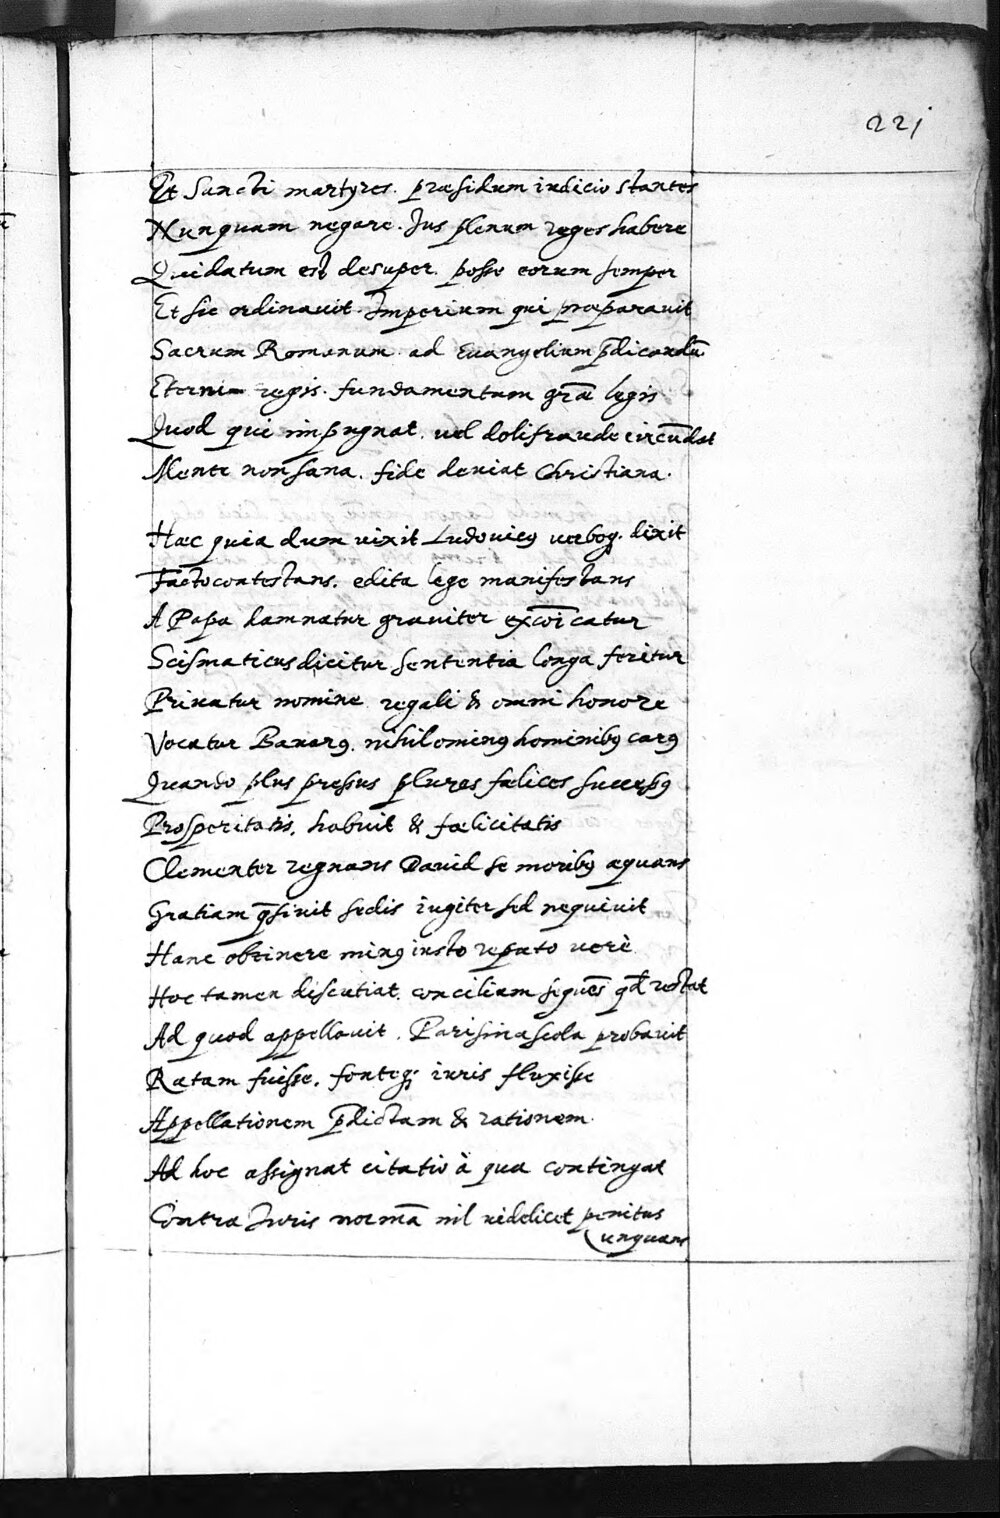 221
Et Sancti martyres. præsidum iudicio stantes
Nunquam negare. Jus plenum reges habere
Qui datum est desuper. posse eorum semper
Et sic ordinauit. Imperium qui præparauit
Sacrum Romanum. ad Euangelium p̄dicandū
Eterni regis. fundamentum gr̄æ legis
Quod qui impugnat. uel doli fraude circūdat
Mente non sana. fide deuiat Christiana.
Hæc quia dum uixit Ludouicꝰ uerboq. dixit
Facto contestans. edita lege manifestans
A Papa damnatur grauiter excōicatur
Scismaticus dicitur sententia longa feritur
Priuatur nomine regali & omni honore
Vocatur Bauarꝰ. nihilominꝰ hominibꝰ carꝰ
Quando plus pressus plures fælices successꝰ
Prosperitatis. habuit & fœlicitatis
Clementer regnans Dauid se moribꝰ æquans
Gratiam q̄siuit sedis iugiter sed nequiuit
Hanc obtinere minꝰ iusto reputo uerè
Hoc tamen discutiat. concilium sequēs qđ restat
Ad quod appellauit. Parisina scola probauit
Ratam fuisse. fonteq; iuris fluxisse
Appellationem p̄dictam & rationem.
Ad hoc assignat citatio à qua contingat
Contra Juris normā nil uidelicet penitus
unquam